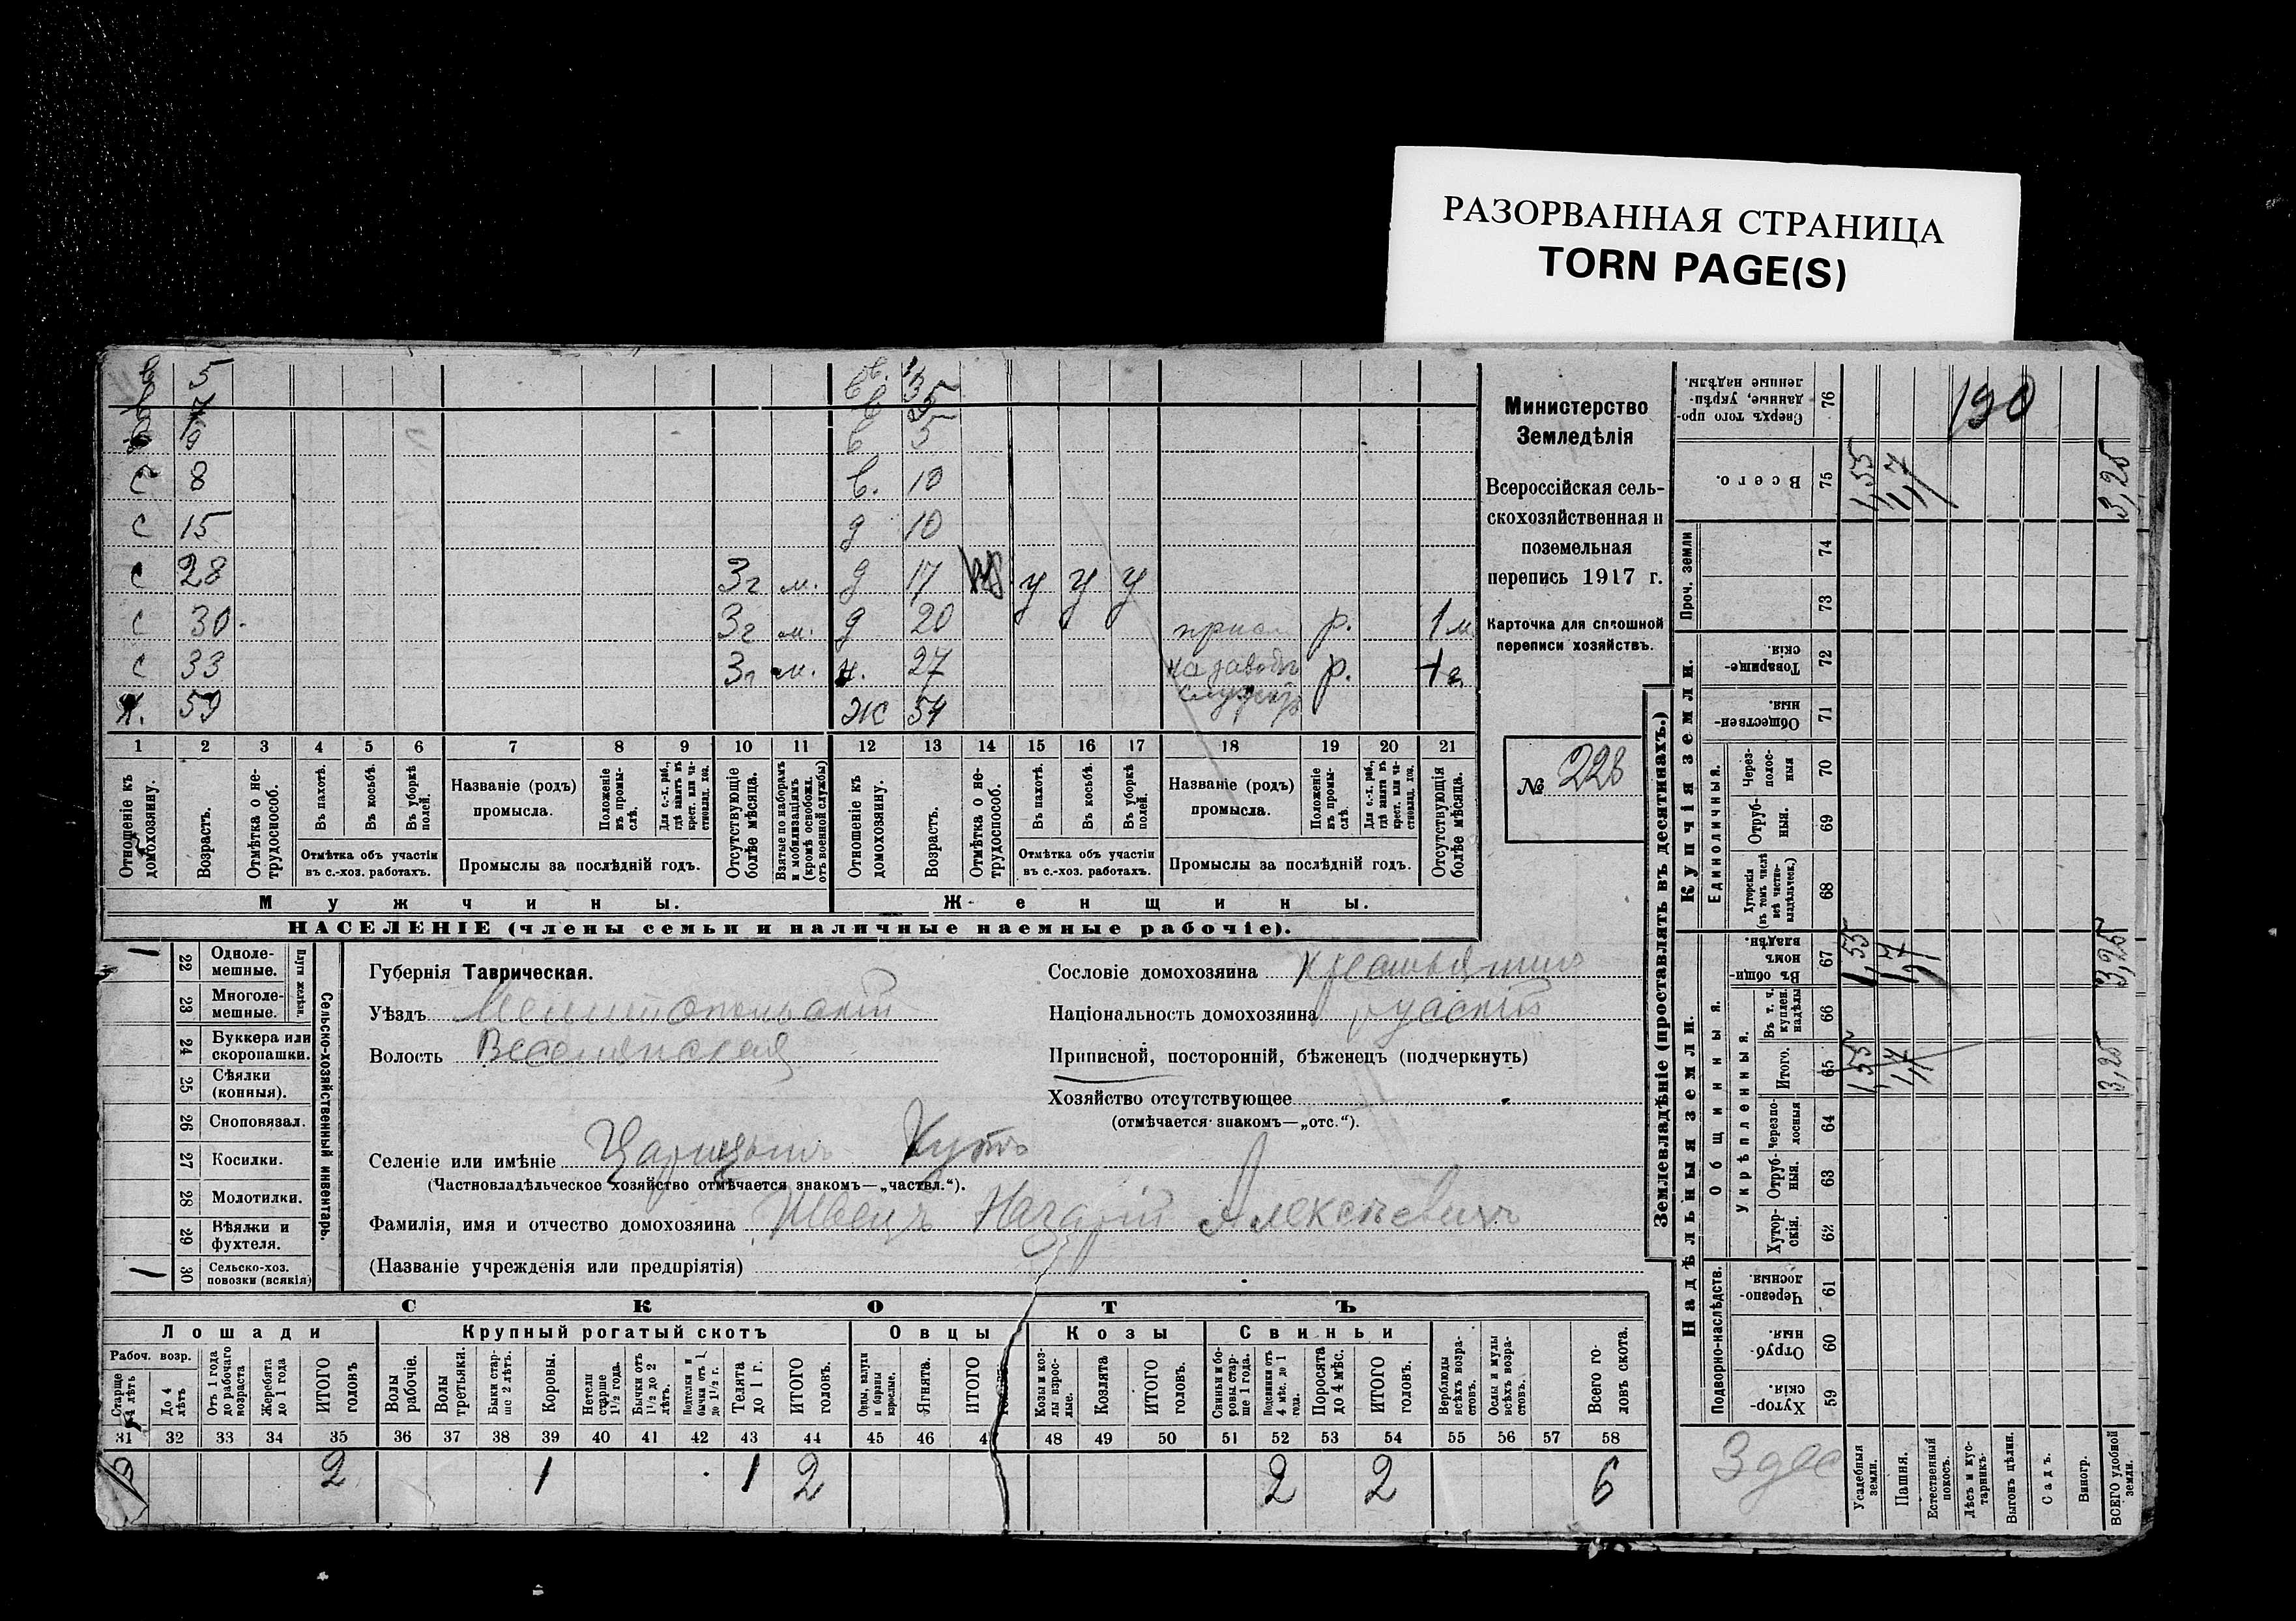 РАЗОРВАННАЯ СТРАНИЦА
TORN PAGE(S)
в 5 в. 1
в 7 в 3
в 9 в 5
с 8 в. 10
с 15 д 10
с 28 3 г м. д 17 у у у
с 30 3 г м. д 20 р. 1 м
с 33 3 г м. н. 27 на заводъ р. 1 г.
х. 59 ж 54 служитъ
1 2 3 4 5 6 7 8 9 10 11 12 13 14 15 16 17 18 19 20 21
Отношеніе къ домохозяину.
Возрастъ.
Отмѣтка о нетрудоспособ.
Въ пахотѣ.
Въ косьбѣ.
Въ уборкѣ полей.
Отмѣтка объ участіи
въ с.-хоз. работахъ.
Названіе (родъ)
промысла.
Положеніе въ промыслѣ.
Для с.-х. раб., гдѣ занятъ въ крест. или частновлад. хоз.
Промыслы за послѣдній годъ.
Отсутствующіе болѣе мѣсяца.
Взятые по наборамъ и мобилизаціямъ (кромѣ освобожд. отъ военной службы)
Отношеніе къ домохозяину.
Возрастъ.
Отмѣтка о нетрудоспособ.
Въ пахотѣ.
Въ косьбѣ.
Въ уборкѣ полей.
Отмѣтка объ участіи
въ с.-хоз. работахъ.
Названіе (родъ)
промысла.
Положеніе въ промыслѣ.
Для с.-х. раб., гдѣ занятъ въ крест. или частновлад. хоз.
Промыслы за послѣдній годъ.
Отсутствующія болѣе мѣсяца.
Мужчины. Женщины.
НАСЕЛЕНІЕ (члены семьи и наличные наемные рабочіе).
Министерство
Земледѣлія
Всероссійская сель-
скохозяйственная и
поземельная
перепись 1917 г.
Карточка для сплошной
переписи хозяйствъ.
№ 228
Сельско-хозяйственный инвентарь.
Плуги желѣзн.
1 22 Однолемешные.
23 Многолемешные.
24 Буккера или скоропашки.
25 Сѣялки (конныя).
26 Сноповязал.
27 Косилки.
28 Молотилки.
29 Вѣялки и фухтеля.
1 30 Сельско-хоз. повозки (всякія)
Губернія Таврическая.
Уѣздъ Мелитопольскій
Волость Веселянская
Сословіе домохозяина крестьянинъ
Національность домохозяина русскій
Приписной, посторонній, бѣженецъ (подчеркнуть)
Хозяйство отсутствующее
(отмѣчается знакомъ—„отс.“).
Селеніе или имѣніе Царицынъ Кутъ
(Частновладѣльческое хозяйство отмѣчается знакомъ—„частвл.“).
Фамилія, имя и отчество домохозяина Швецъ Назарій Алексѣевичъ
(Названіе учрежденія или предпріятія)
СКОТЪ
Лошади Крупный рогатый скотъ Овцы Козы Свиньи
Рабоч. возр.
Старше 4 лѣтъ
До 4 лѣтъ
Отъ 1 года до рабочаго возраста
Жеребята до 1 года
ИТОГО головъ
Волы рабочіе.
Волы третьяки.
Быки старше 2 лѣтъ.
Коровы.
Нетели старше 1½ года.
Бычки отъ 1½ до 2 лѣтъ.
Подтелки и бычки отъ 1 до 1½ г.
Телята до 1 г.
ИТОГО головъ.
Овцы, валухи и бараны взрослые.
Ягнята.
ИТОГО
Козы и козлы взрослые.
Козлята
ИТОГО головъ.
Свиньи и боровы старше 1 года.
Подсвинки отъ 4 мѣс. до 1 года.
Поросята до 4 мѣс.
ИТОГО головъ.
Верблюды всѣхъ возрастовъ.
Ослы и мулы всѣхъ возрастовъ.
Всего головъ скота.
31 32 33 34 35 36 37 38 39 40 41 42 43 44 45 46 4 48 49 50 51 52 53 54 55 56 57 58
2 2 1 1 2 2 2 6
Землевладѣніе (проставлять въ десятинахъ.)
Надѣльныя земли. Купчія земли. Проч. земли
Подворно-наслѣдств.
Общинныя.
Укрѣпленныя.
Единоличныя.
59 Хуторскія
60 Отрубныя.
61 Черезполосныя.
62 Хуторскія.
63 Отрубныя.
64 Черезполосныя
65 Итого.
66 Въ т. ч. куплен. надѣлы
67 Въ общинномъ владѣн.
68 Хуторскія (въ томъ числѣ всѣ частновладѣльческ.)
69 Отрубныя.
70 Черезполосныя
71 Общественныя.
72 Товарищескія.
73
74
75 Всего.
76 Сверхъ того проданные, укрѣпленные надѣлы.
190
1,55 1,7 3,25
1,55 1,7 3,25
1,55 1,7 3,25
Здѣс
Усадебныя земли.
Пашня.
Естественный покосъ.
Лѣсъ и кустарникъ.
Выгонъ цѣлин.
Садъ.
Виногр.
ВСЕГО удобной земли.